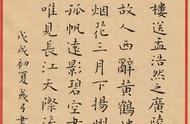 樓送孟浩然之廣陵
故人西辭黃鶴樓
烟花三月下揚州
孤帆遠影碧空盡
唯見長江天際流
戊戌初夏書